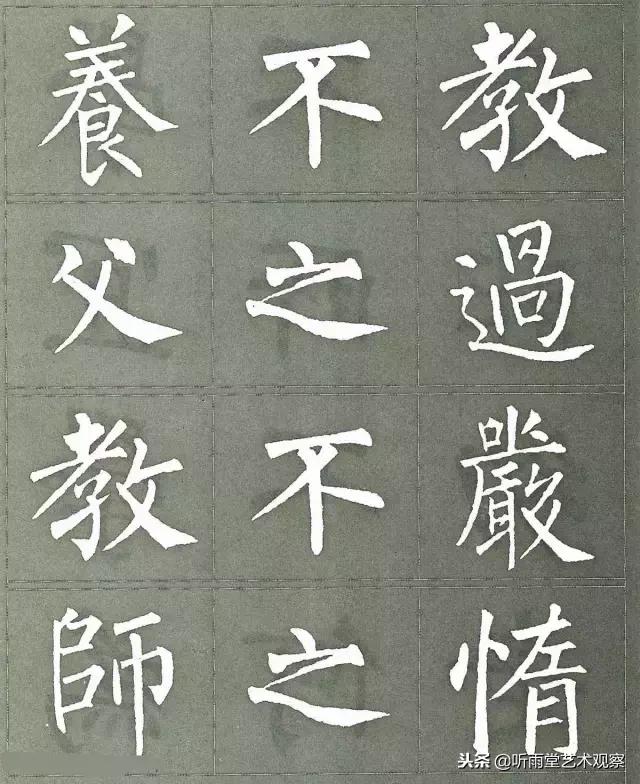 養不教
父之過
教不嚴
師之惰
头条 @听雨堂艺术观察